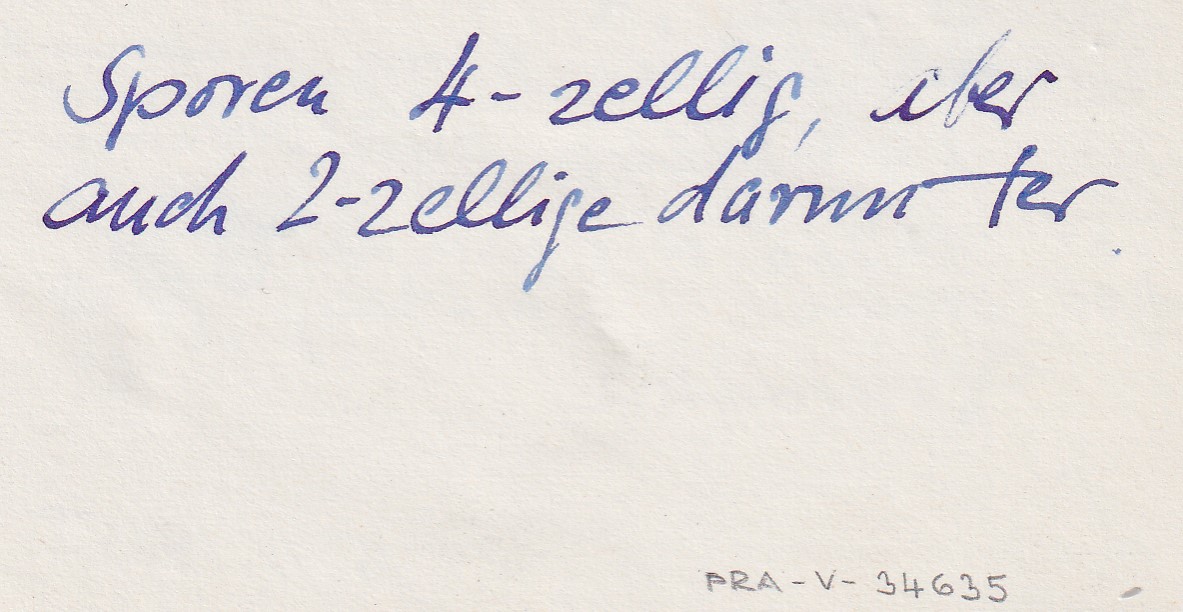 Sporen 4-zellig, aber
auch 2-zellige darunter.
PRA-V-34635